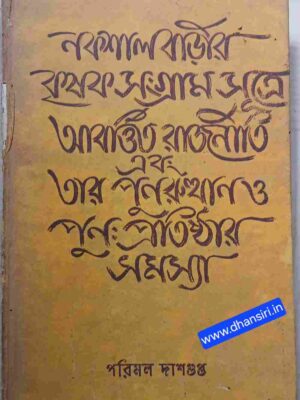 নকশালবাড়ীর
কৃষক সংগ্রাম সূত্রে
আবর্ত্তিত রাজনীতি
এবং
তার পুনরুত্থান ও
পুনঃ প্রতিষ্ঠার
সমস্যা
www.dhansiri.in
পরিমল দাশগুপ্ত